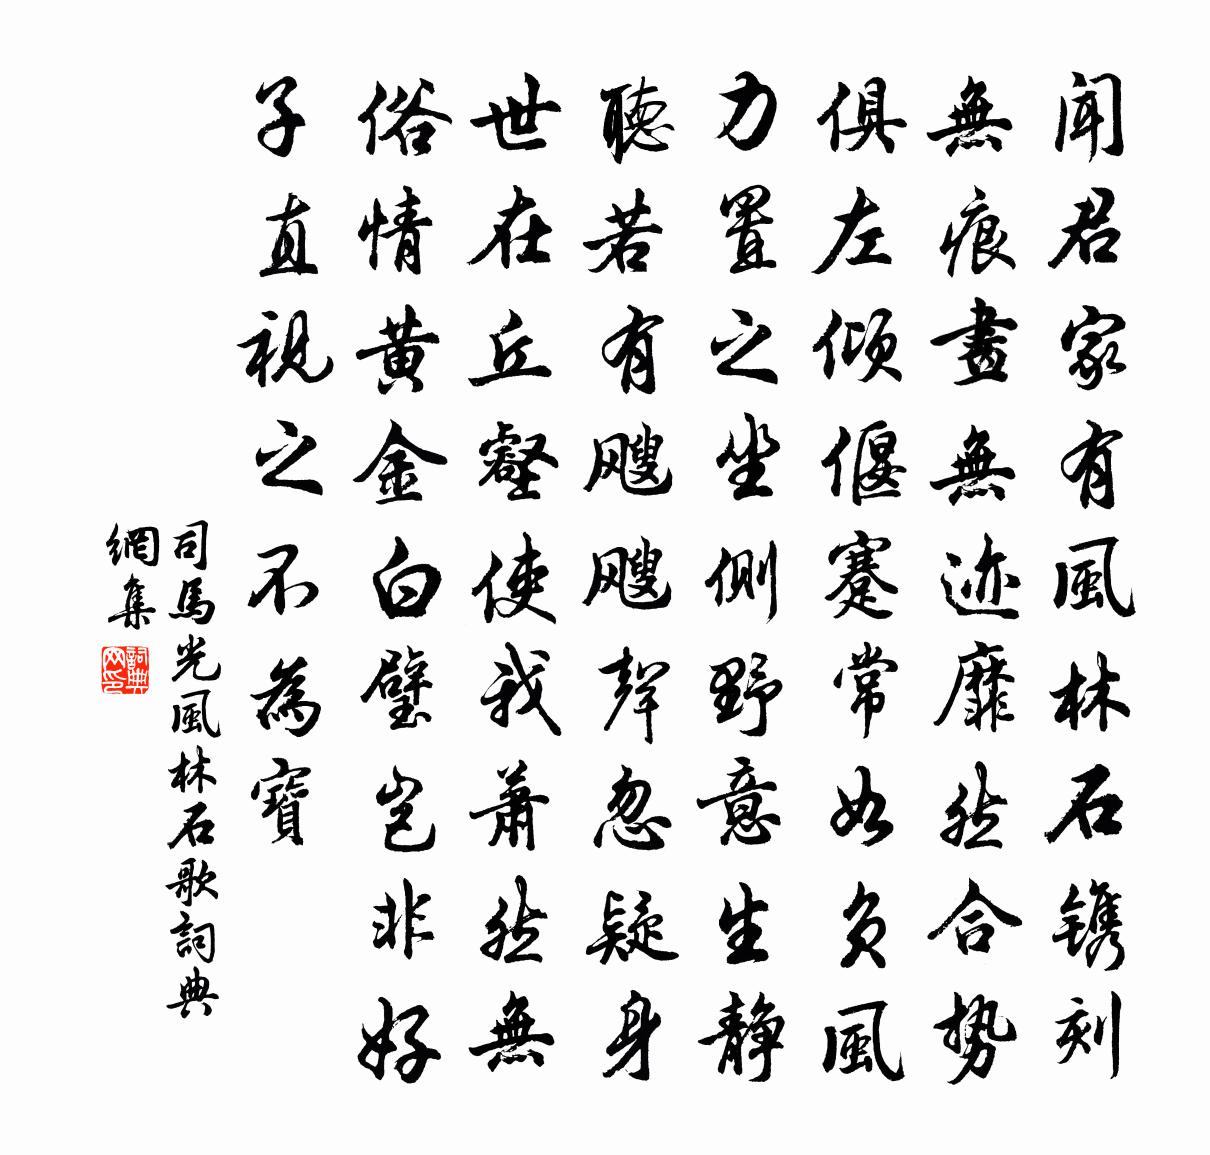 闻君家有風林石镌刻
無痕畫無迹靡然合勢
俱左傾偃蹇常如負風
力置之坐側野意生静
聴若有飕飕聲忽疑身
世在丘壑使我蕭然無
俗情黄金白璧豈非好
子直視之不為寶
司馬光風林石歌詞典
網集
詞典网印